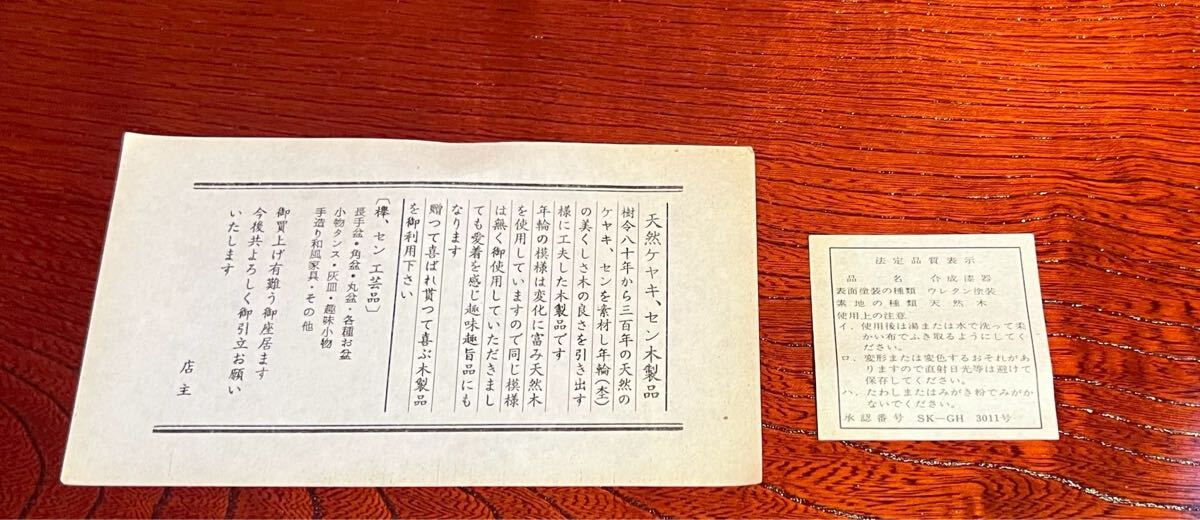 天然ケヤキ、セン木製品
樹令八十年から三百年の天然の
ケヤキ、センを素材し年輪(杢)
の美くしさ木の良さを引き出す
様に工夫した木製品です
年輪の模様は変化に富み天然木
を使用していますので同じ模様
は無く御使用していただきまし
ても愛着を感じ趣味趣旨品にも
なります
贈つて喜ばれ貰つて喜ぶ木製品
を御利用下さい
〔欅、セン工芸品〕
長手盆・角盆・丸盆・各種お盆
小物タンス・灰皿・趣味小物
手造り和風家具・その他
御買上げ有難う御座居ます
今後共よろしく御引立お願い
いたします
店主
法定品質表示
品名 合成漆器
表面塗装の種類 ウレタン塗装
素地の種類 天然木
使用上の注意
イ、使用後は湯または水で洗って柔
かい布でふき取るようにしてく
ださい。
ロ、変形または変色するおそれがあ
りますので直射日光等は避けて
保存してください。
ハ、たわしまたはみがき粉でみがか
ないでください。
承認番号 SK-GH 3011号